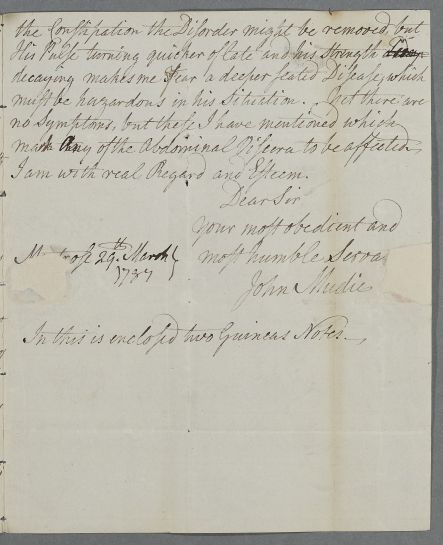 the Constipation the Disorder might be removed, but
His Pulse turning quicker of late and his strength
decaying makes me fear a deeper seated Disease, which
must be hazardous in his Situation. Yet there are
no Symptoms, but these I have mentioned which
mark Any of the Abdominal Viscera to be affected,
I am with real Regard and Esteem.
Dear Sir
your most obedient and
most humble Serva
M trose 29.th March
1787
John Mudie
In this is enclosed two Guineas Notes.